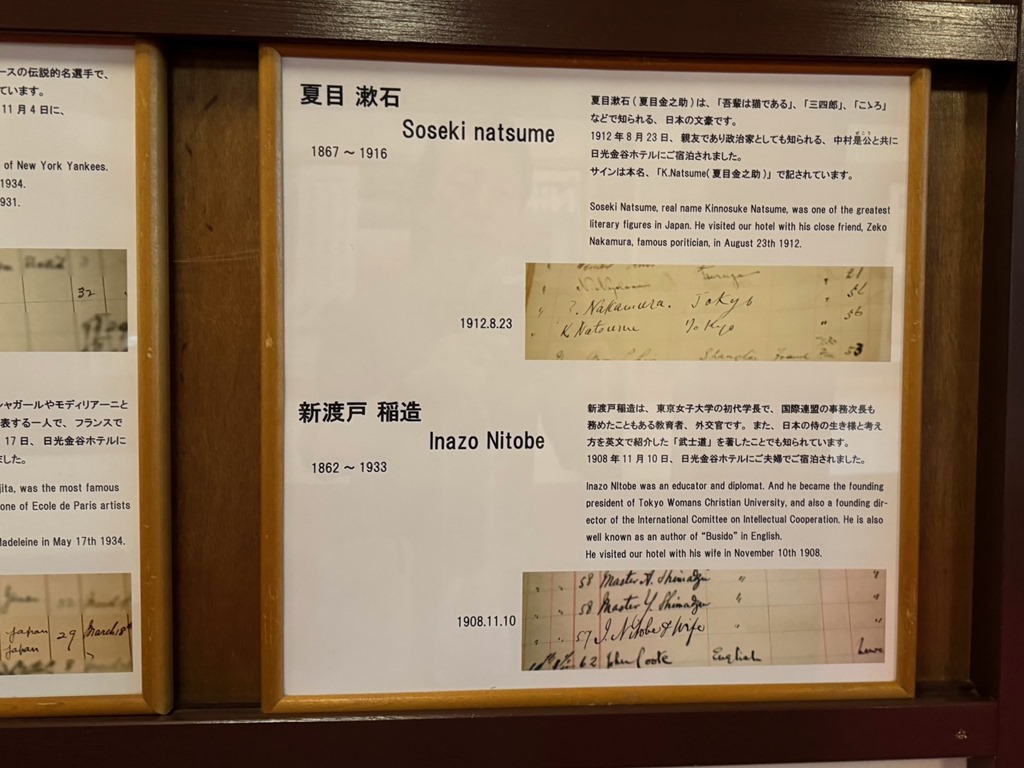 ースの伝説的名選手で、
ています。
11月4日に、
of New York Yankees.
1934.
931.
32
シャガールやモディリアーニと
表する一人で、フランスで
17日、日光金谷ホテルに
ました。
jita, was the most famous
one of Ecole de Paris artists
Madeleine in May 17th 1934.
Japan 29 March 18th
Japan
夏目 漱石
Soseki natsume
1867 ～ 1916
夏目漱石(夏目金之助)は、「吾輩は猫である」、「三四郎」、「こゝろ」
などで知られる、日本の文豪です。
1912年8月23日、親友であり政治家としても知られる、中村是公と共に
ぜこう
日光金谷ホテルにご宿泊されました。
サインは本名、「K.Natsume(夏目金之助)」で記されています。
Soseki Natsume, real name Kinnosuke Natsume, was one of the greatest
literary figures in Japan. He visited our hotel with his close friend, Zeko
Nakamura, famous poritician, in August 23th 1912.
1912.8.23
Nakamura. Tokyo " 56
" K Natsume Tokyo "
Shanghai 53
新渡戸 稲造
Inazo Nitobe
1862 ～ 1933
新渡戸稲造は、東京女子大学の初代学長で、国際連盟の事務次長も
務めたこともある教育者、外交官です。また、日本の侍の生き様と考え
方を英文で紹介した「武士道」を著したことでも知られています。
1908年11月10日、日光金谷ホテルにご夫婦でご宿泊されました。
Inazo NItobe was an educator and diplomat. And he became the founding
president of Tokyo Womans Christian University, and also a founding dir-
ector of the International Comittee on Intellectual Cooperation. He is also
well known as an author of “Busido” in English.
He visited our hotel with his wife in November 10th 1908.
1908.11.10
" " 58 Master A. Shimadzu " "
" " 58 Master Y. Shimadzu "
" " 57 I. Nitobe & Wife "
62 John Coote English